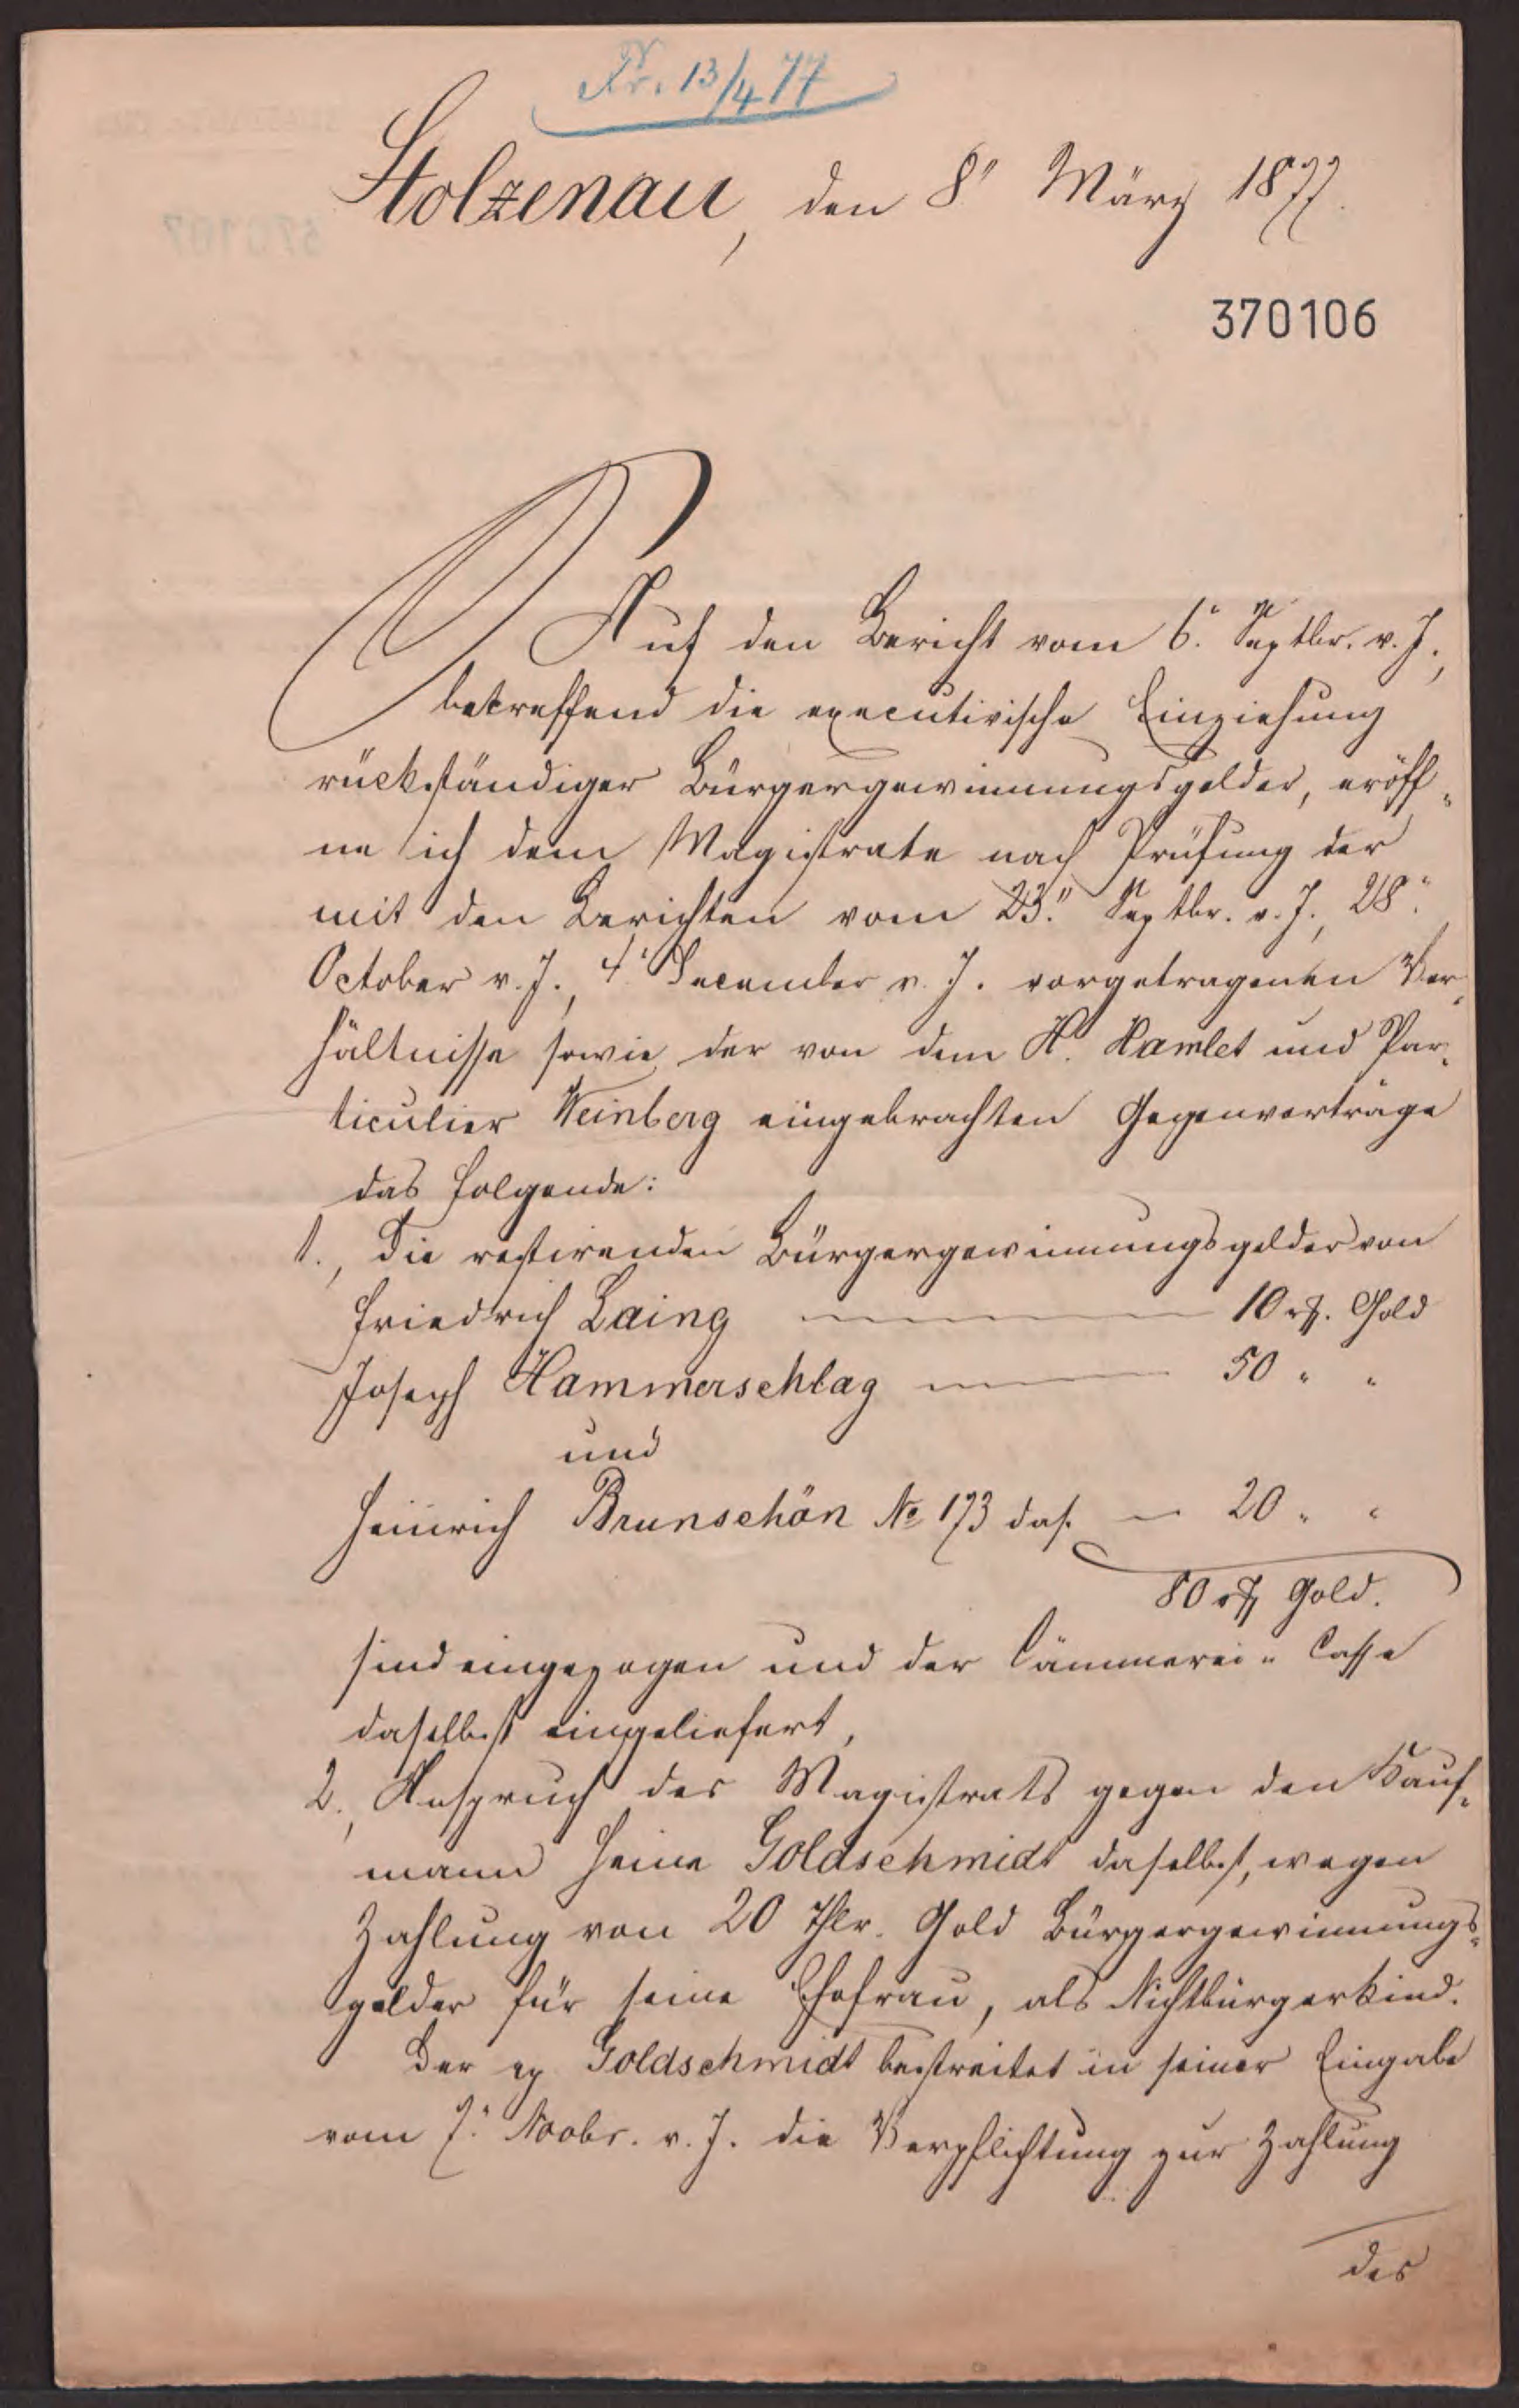 Pr. 13/4 77
Stolzenau, den 8" März 1877.
370106
Auf den Bericht vom 6. Septbr. v. J.,
betreffend die executivische Einziehung
rückständiger Bürgergewinnungsgelder, eröff-
ne ich dem Magistrate nach Prüfung der
mit den Berichten vom 23." Septbr. v. J., 28."
October v. J., 4. December v. J. vorgetragenen Ver-
hältnisse sowie der von dem H. Hamlet und Par-
ticulier Weinberg eingebrachten Gegenvorträge
das folgende:
1., Die restirenden Bürgergewinnungsgelder von
Friedrich Laing 10 rf. Gold
Joseph Hammerschlag 50 " "
und
Heinrich Brunschön No 173 das. – 20 " "
80 rf Gold.
sind eingezogen und der Cämmerei-Casse
daselbst eingeliefert,
2., Anspruch des Magistrats gegen den Kauf-
mann Heine Goldschmidt daselbst, wegen
Zahlung von 20 Thlr. Gold Bürgergewinnungs-
gelder für seine Ehefrau, als Nichtbürgerkind.
Der ep Goldschmidt bestreitet in seiner Eingabe
vom 7. Novbr. v. J. die Verpflichtung zur Zahlung
des